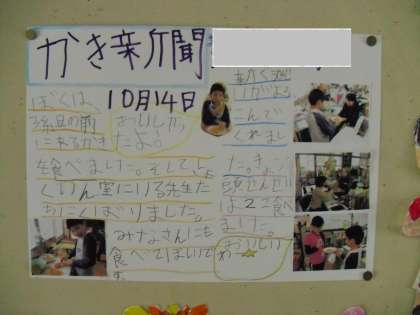 かき新聞
10月14日
ぼくは、
玄関の前
にあるかき
おいしかっ
たよ。
を食べました。そしてしょ
くいん室にいる先生た
ちにくばりました。
みなさんにも
食べてほしいで
す
よろ
こんで
くれまし
た。きょう
頭せんせい
は2こ食べ
ました。
おいしい